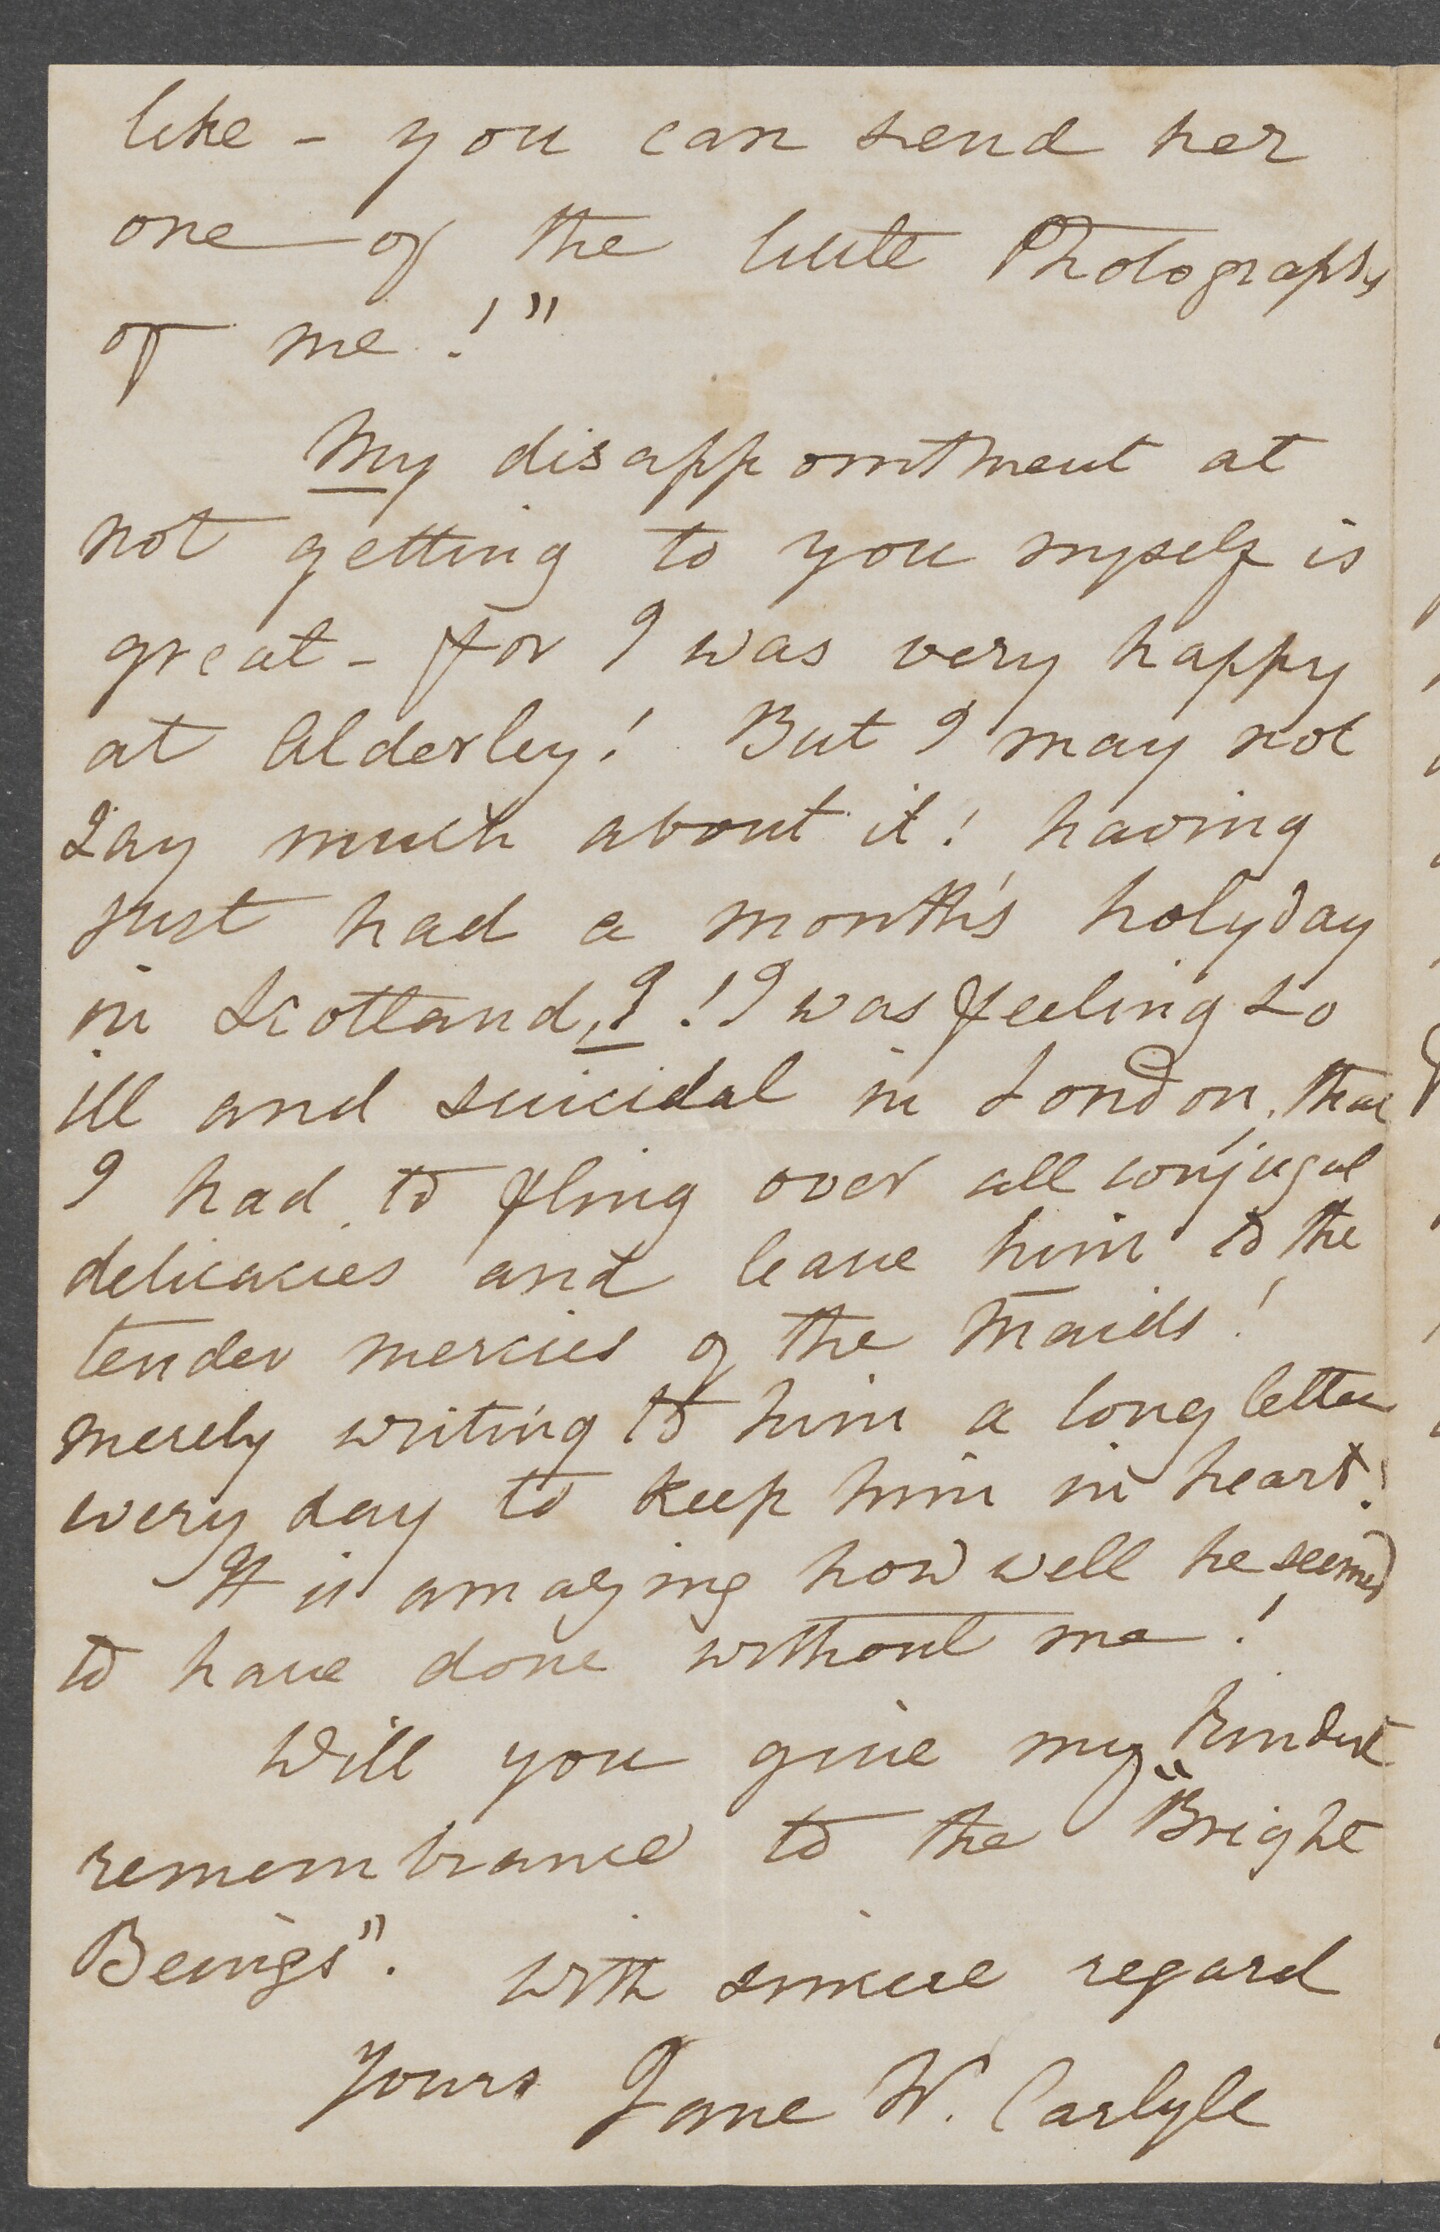 like – you can send her
one of the little Photographs
of me!"
My disappointment at
not getting to you myself is
great – for I was very happy
at Alderley! But I may not
say much about it! having
just had a month's holyday
in Scotland, I! I was feeling so
ill and suicidal in London, that
I had to fling over all conjugal
delicacies and leave him to the
tender mercies of the Maids!
merely writing to him a long letter
every day to keep him in heart!
It is amazing how well he seemed
to have done without me!
Will you give my kindest
remembrance to the "Bright
Beings". With sincere regard
Yours Jane W. Carlyle